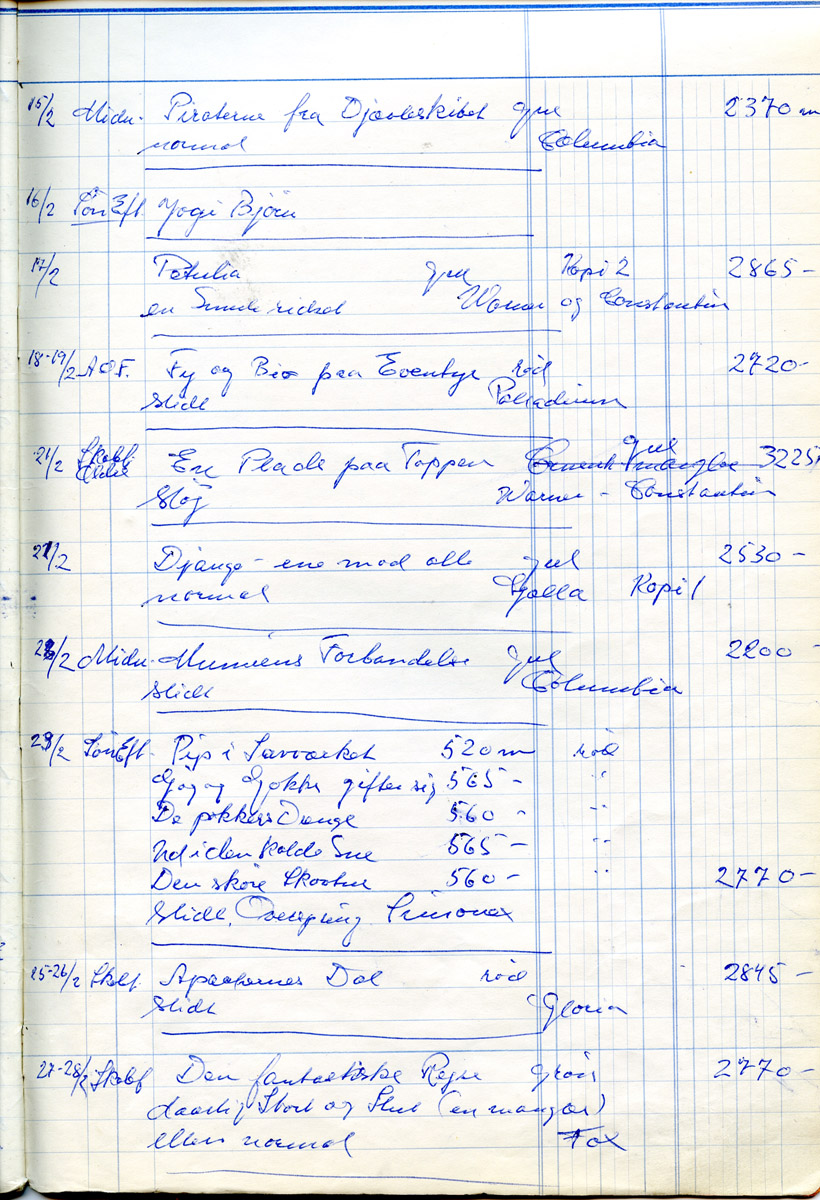 15/2 Midn. Piraterne fra Djævleskibet gul 2370 m
normal Columbia
16/2 SönEft. Yogi Björn
17/2 Petulia gul Kopi 2 2865 -
en Smule ridset Warner og Constantin
18-19/2 AOF. Fy og Bi paa Eventyr röd 2720 -
Slidt Palladium
21/2 Skobf. Een Plade paa Toppen gul 3225
Slöj Warner - Constantin
22/2 Django - ene mod alle gul 2530 -
normal Gjölla Kopi 1
23/2 Midn. Mumiens Forbandelse gul 2200 -
Slidt Columbia
23/2 SönEft. Pip i Savværket 520 m röd
Gög og Gokke gifter sig 565 - "
De pokkers Drenge 560 - "
Ud i den kolde Sne 565 - "
Den sköre Skovtur 560 - " 2770 -
Slidt,
25-26/2 Skobf. Apachernes Dal röd 2845 -
Slidt Gloria
27-28/2 Skobf Den fantastiske Rejse grön 2770 -
daarlig Start og Slut (en mangler)
ellers normal Fox